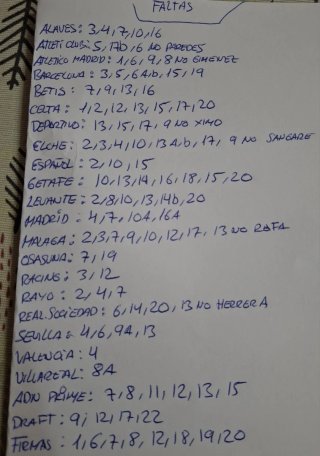 FALTAS
ALAVES: 3,4,7,10,16
ATLETI CLUB: 5, 17b, 6 NO PAREDES
ATLETICO MADRID: 1,6,9,8 NO GIMENEZ
BARCELONA: 3,5,6Ab,15,19
BETIS: 7,9,13,16
CELTA: 1,2,12,13,15,17,20
DEPORTIVO: 13,15,17, 9 NO XIMO
ELCHE: 2,3,4,10,13Ab,17, 9 NO SANGARE
ESPAÑOL: 2,10,15
GETAFE: 10,13,14,16,18,15,20
LEVANTE: 2,8,10,13,14b,20
MADRID: 4,7,10A,16A
MALAGA: 2,3,7,9,10,12,17, 13 NO RAFA
OSASUNA: 7,19
RACING: 3,12
RAYO: 2,4,7
REAL SOCIEDAD: 6,14,20,13 NO HERRERA
SEVILLA: 4,6,9A,13
VALENCIA: 4
VILLAREAL: 8A
ADN PRIME: 7,8,11,12,13,15
DRAFT: 9,12,17,22
FIRMAS: 1,6,7,8,12,18,19,20